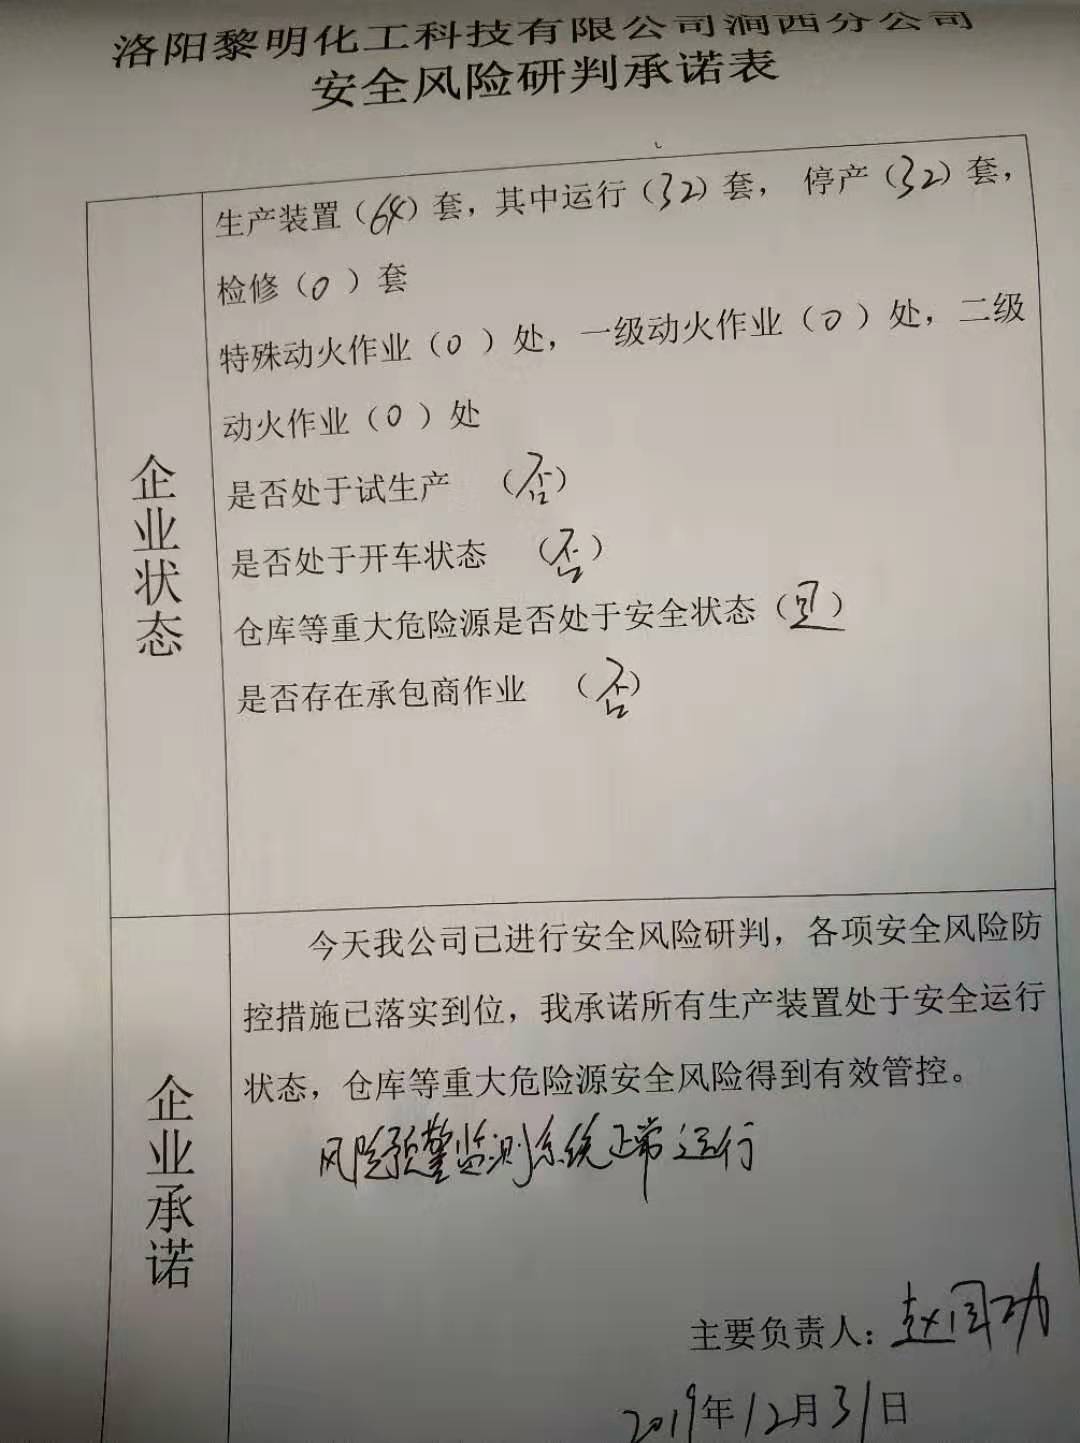 洛阳黎明化工科技有限公司涧西分公司
安全风险研判承诺表
企业状态
生产装置（64）套，其中运行（32）套， 停产（32）套，
检修（0）套
特殊动火作业（0）处，一级动火作业（0）处，二级
动火作业（0）处
是否处于试生产 （否）
是否处于开车状态 （否）
仓库等重大危险源是否处于安全状态（是）
是否存在承包商作业 （否）
企业承诺
今天我公司已进行安全风险研判，各项安全风险防
控措施已落实到位，我承诺所有生产装置处于安全运行
状态，仓库等重大危险源安全风险得到有效管控。
风险预警监测系统正常运行
主要负责人：赵国功
2019年12月31日